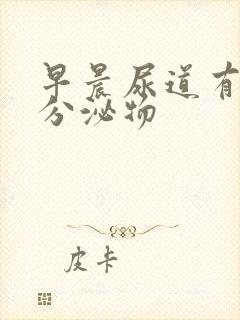 早晨尿道有
分泌物
皮卡